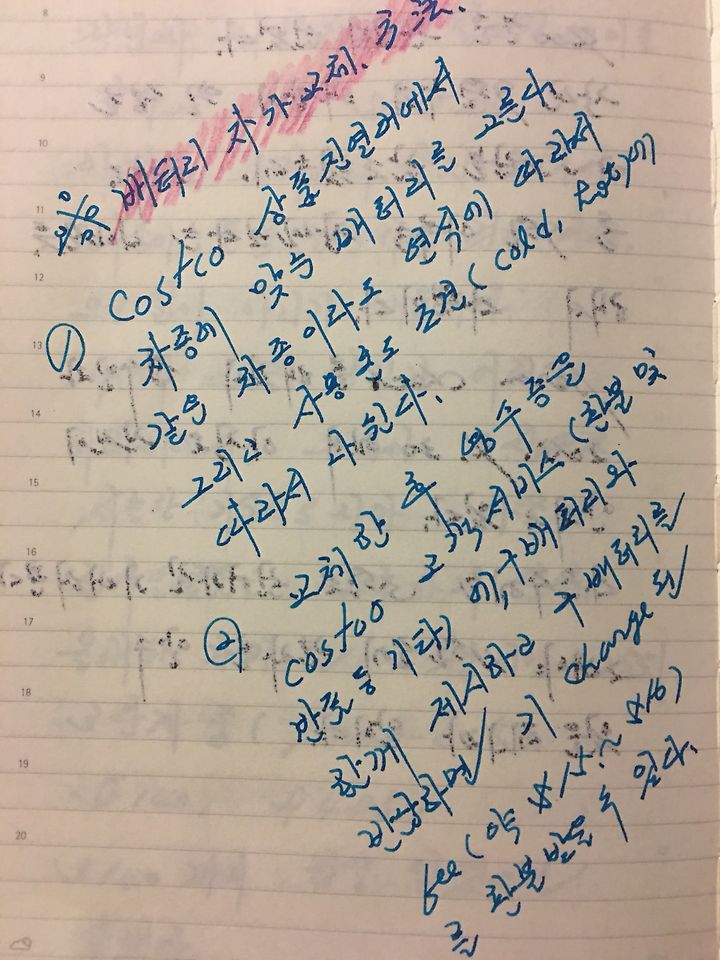 ※ 배터리 자가교체.
① Costco 상품진열러에서
차종에 맞는 배터리를 고른다
같은 차종이라도 연식에 따라서
그리고 사용 온도 조건(cold, hot)에
따라서 나뉜다.
② 교체 한 후 영수증을
Costco 고객서비스(환불 및
반품 등 기타)에, 구배터리와
함께 제시하고 구 배터리를
반납하면/ 기 change 된
fee(약 $15.~$16)
를 환불받을 수 있다.
8
9
10
11
12
13
14
15
16
17
18
19
20